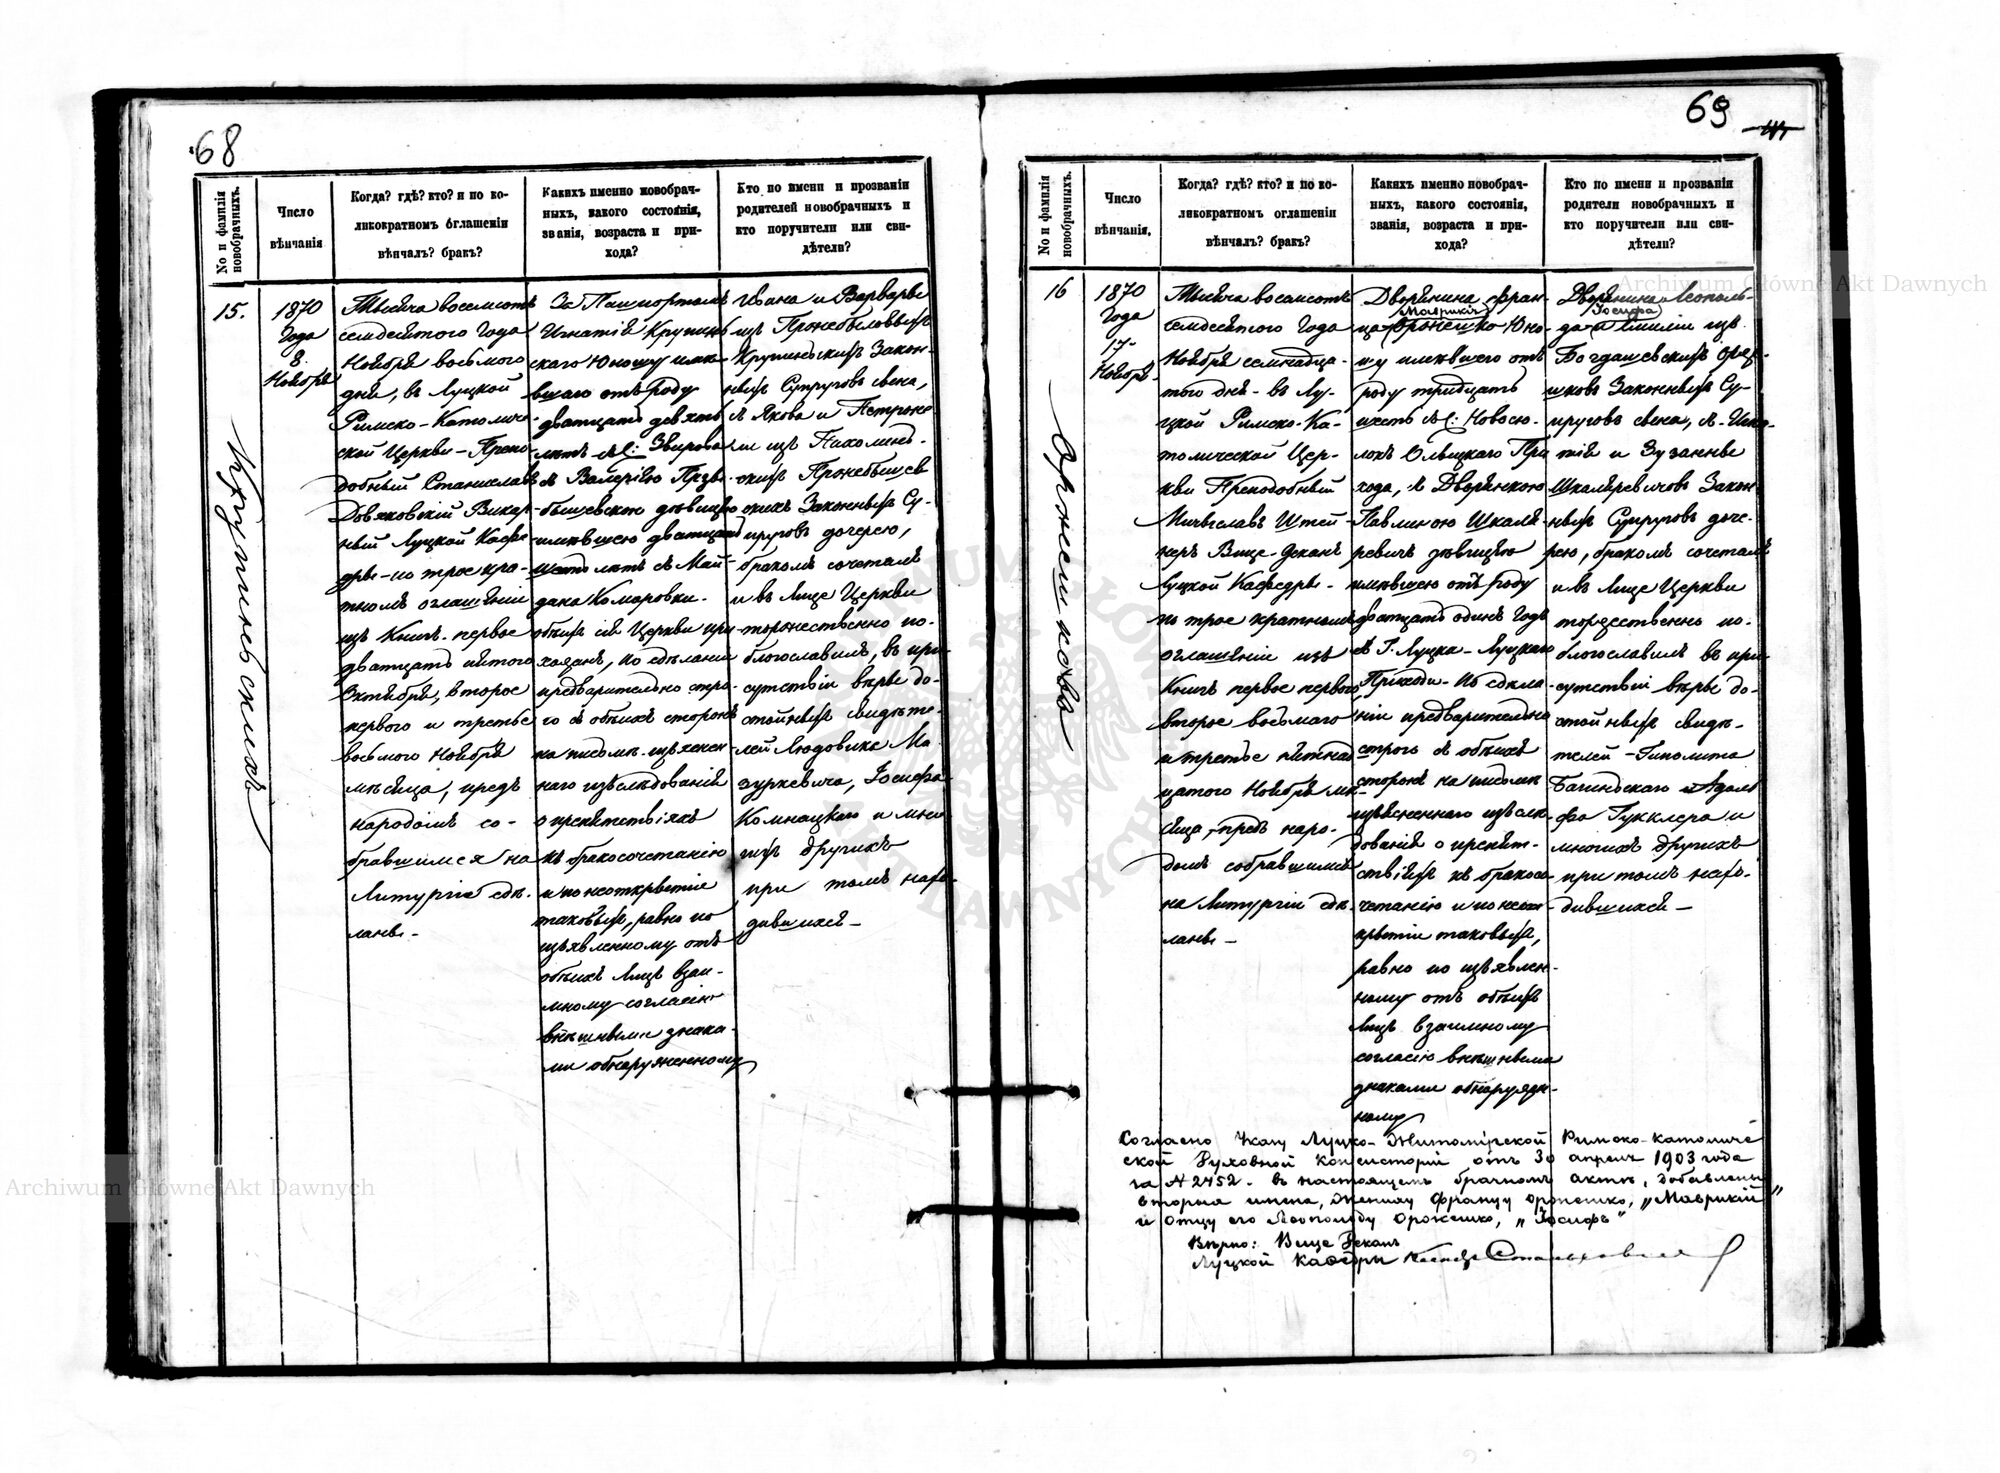 68
No и фамилія новобрачныхъ.
Число вѣнчанія
Когда? гдѣ? кто? и по ко-
ликократномъ оглашеніи
вѣнчалъ? бракъ?
Какихъ именно новобрач-
ныхъ, какого состоянія,
званія, возраста и при-
хода?
Кто по имени и прозванію
родителей новобрачныхъ и
кто поручители или сви-
дѣтели?
15.
1870
Года
8.
Ноября
Тысяча восемсотъ
семдесятого Года
Ноября восьмого
дня, въ Луцкой
Римско-Католиче
ской Церкви - Препо
добный Станиславъ
Викар
ный Луцкой Кафе
дры - по троекра-
тномъ оглашеніи
изъ Книгъ первое
двадцать пятого
Октября, второе
первого и третье
восьмого Ноября
мѣсяца, предъ
народомъ со-
бравшимся на
Литургіе сдѣ-
ланы -
За Пашпортомъ
Игнатій
скаго Юношу имѣ-
вшаго отъ Роду
двадцать девять
лѣтъ
съ Валеріею
дѣвицею
имѣвшею двадцать
лѣтъ съ Май-
дана Комаровки -
обоихъ сей Церкви при-
хожанъ, по сдѣланіи
предварительно стро-
го съ обѣихъ сторонъ
на письмѣ изъяснен
наго изслѣдованій
о препятствіяхъ
къ бракосочетанію
и по неоткрытіе
таковыхъ, равно по
изъявленному отъ
обѣихъ Лицъ взаи-
мному согласію
внѣшными знака-
ми обнаруженному
Ивана и Варвары
изъ
Закон-
ныхъ Супруговъ сына,
съ Якова и Петроне
ли изъ
Законныхъ Су-
пруговъ дочерею,
бракомъ сочеталъ
и въ Лице Церкви
торжественно по-
благославилъ, въ при-
сутствіи вѣры до-
стойныхъ свидѣте-
лей Людовика Ма-
зуркевича, Іосифа
Комнацкого и мно
гихъ другихъ
при томъ нахо-
дившихся -
69
No и фамилія новобрачныхъ.
Число вѣнчанія.
Когда? гдѣ? кто? и по ко-
ликократномъ оглашеніи
вѣнчалъ? бракъ?
Какихъ именно новобрач-
ныхъ, какого состоянія,
званія, возраста и при-
хода?
Кто по имени и прозванію
родители новобрачныхъ и
кто поручители или сви-
дѣтели?
16
1870
Года
17
Ноября
Тысяча восемсотъ
семдесятого Года
Ноября семнадца-
того дня - въ Лу-
цкой Римско-Ка-
толической Цер-
кви Преподобный
Мичыславъ Штей-
неръ Вице-Деканъ
Луцкой Кафедры -
по трое кратномъ
оглашеніи изъ
Книгъ первое первого,
второе восьмаго
и третье пятнад
цатого Ноября мѣ-
сяца, предъ наро-
домъ собравшимся
на Литургіи сдѣ-
ланы -
Дворянина Фран-
Маврикія
ца Оржешко Юно-
шу имѣвшего отъ
роду тридцать
шесть лѣ: Новосю-
локъ Олыцкаго При
хода, съ Дворянкою
Павлиною Шкаля
ревичъ дѣвицею
имѣвшею отъ роду
двадцать одинъ Годъ
съ Г. Луцка - Луцкаго
Прихода - По сдѣла-
ніи предварительно
строго съ обѣихъ
сторонъ на письмѣ
изъясненнаго изслѣ-
дованій о препят-
ствіяхъ къ бракосо
четанію и по неот-
крытіи таковыхъ,
равно по изъявлен-
ному отъ обоихъ
Лицъ взаимному
согласію внѣшными
знаками обнаружен-
ному
Дворянина Леополь-
Іосифа
да и Емиліи изъ
Богдашевскихъ Орже-
шковъ Законныхъ Су-
пруговъ сына, съ Игна-
тія и Зузанны
Шкаляревичовъ Закон-
ныхъ Супруговъ доче-
рею, бракомъ сочеталъ
и въ Лице Церкви
торжественно по-
благославилъ въ при-
сутствіи вѣры до-
стойныхъ свидѣ-
телей - Гиполита
Багинскаго и Адоль
фа Гукклера и
многихъ другихъ
при томъ нахо-
дившихся -
Согласно Указу Луцко-Житомірской Римско-католиче
ской Духовной Консисторіи отъ 30 апреля 1903 года
за N 2452 - въ настоящемъ брачномъ актѣ, добавлены
вторыя имена, Жениху Францу Оржешко, „Маврикій"
и Отцу его Леопольду Оржешко, „Іосифъ"
Вѣрно: Вице Деканъ
Луцкой Кафедры
Оржешковъ
Archiwum Główne Akt Dawnych
Archiwum Główne Akt Dawnych